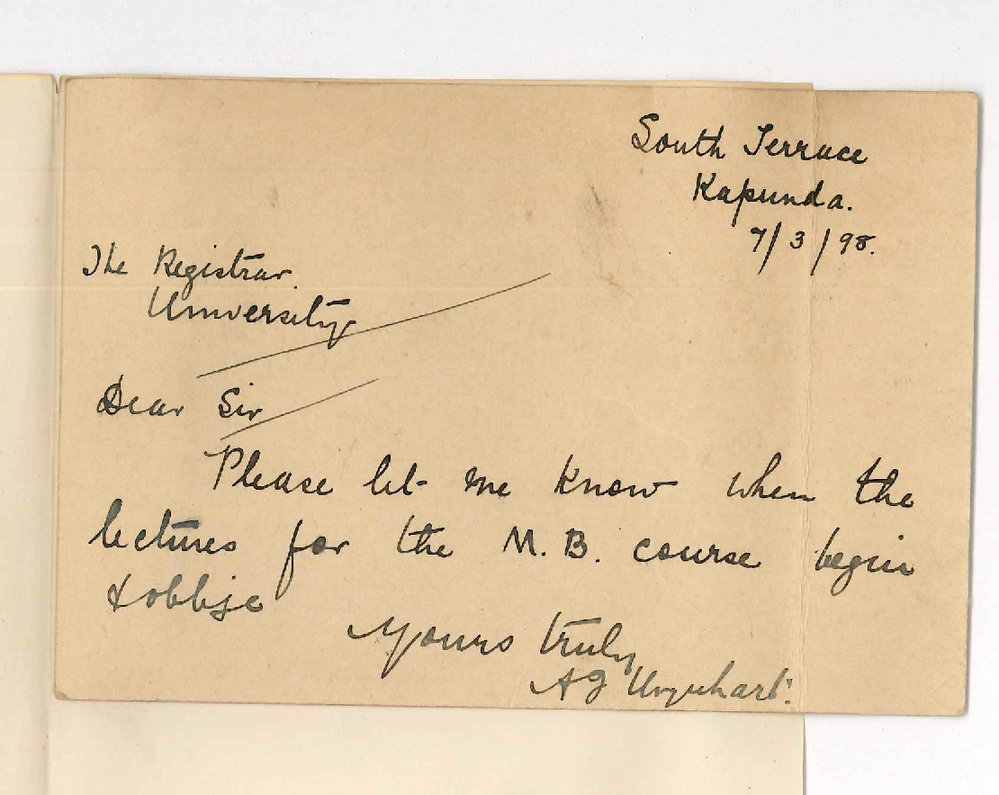 South Terrace
Kapunda.
7/3/98.
The Registrar
University
Dear Sir
Please let me know when the
lectures for the M.B. course begin
& oblige
Yours truly
A G Urquhart.